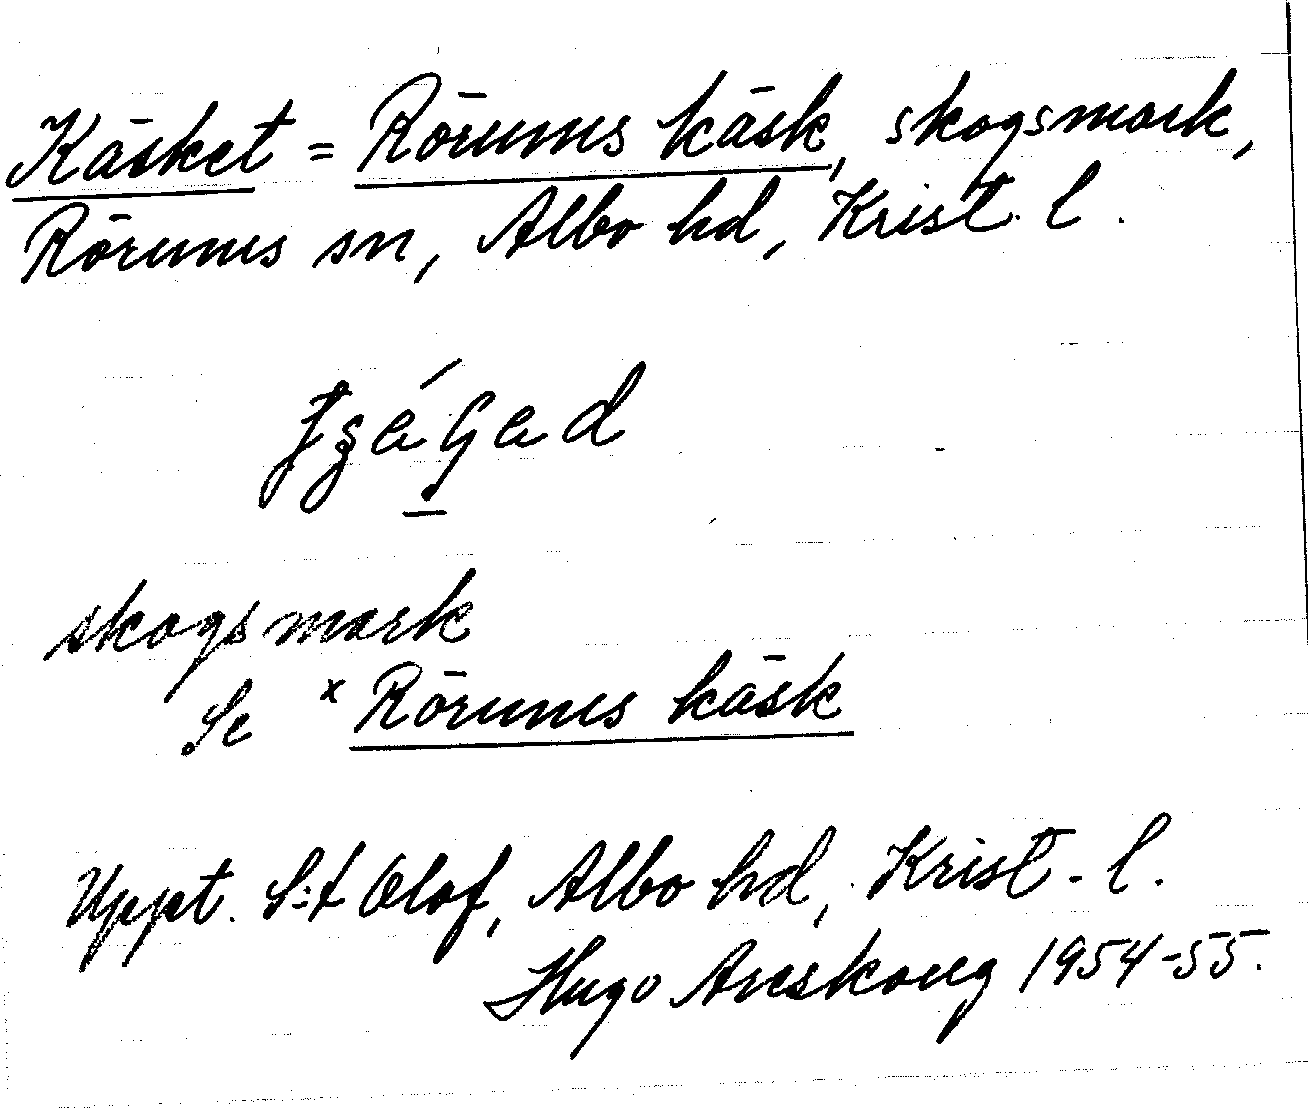 Käsket = Rörums käsk, skogsmark,
Rörums sn, Albo hd, Krist. l.
skogsmark
Se x Rörums käsk
Uppt. S:t Olof, Albo hd, Krist. l.
Hugo Areskoug 1954-55.